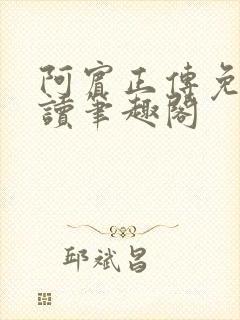 阿賓正傳免
讀筆趣閣
邱斌昌